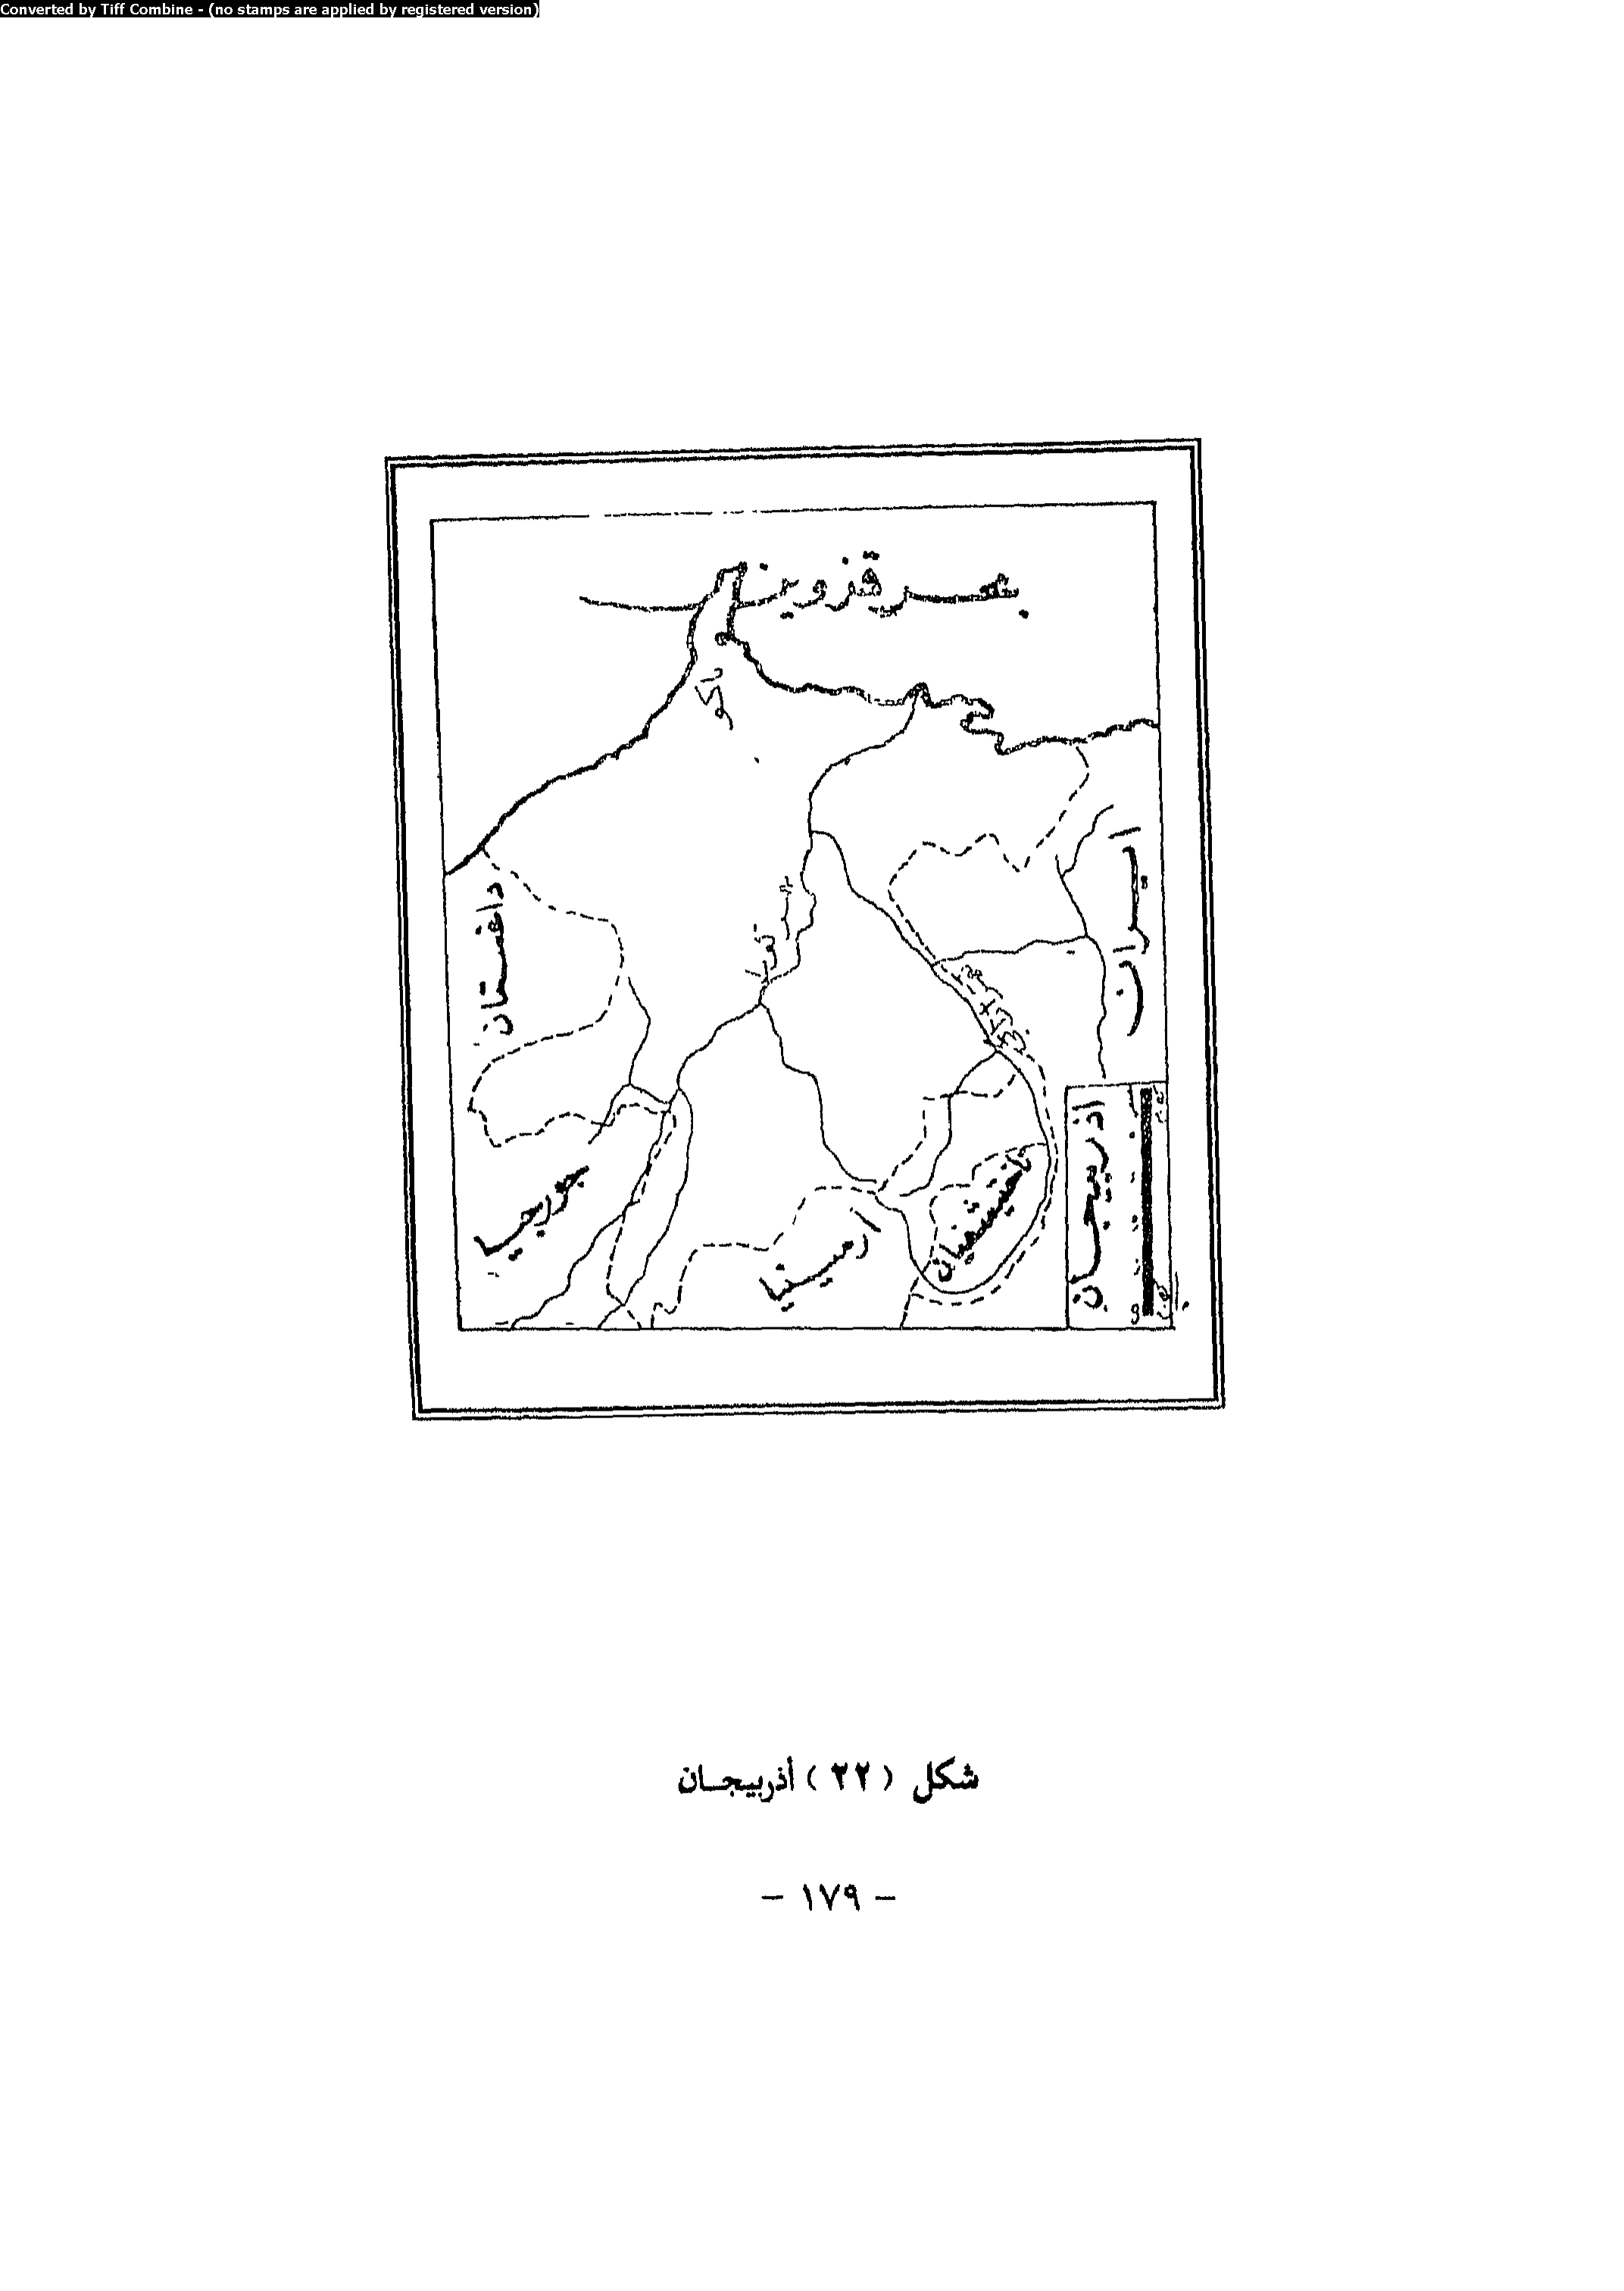 Converted by Tiff Combine - (no stamps are applied by registered version)
بحر قزوين
باكو
داغستان
ايران
جورجيا
ارمينيا
اذربيجان
شكل (٢٢) أذربيجان
- ١٧٩ -